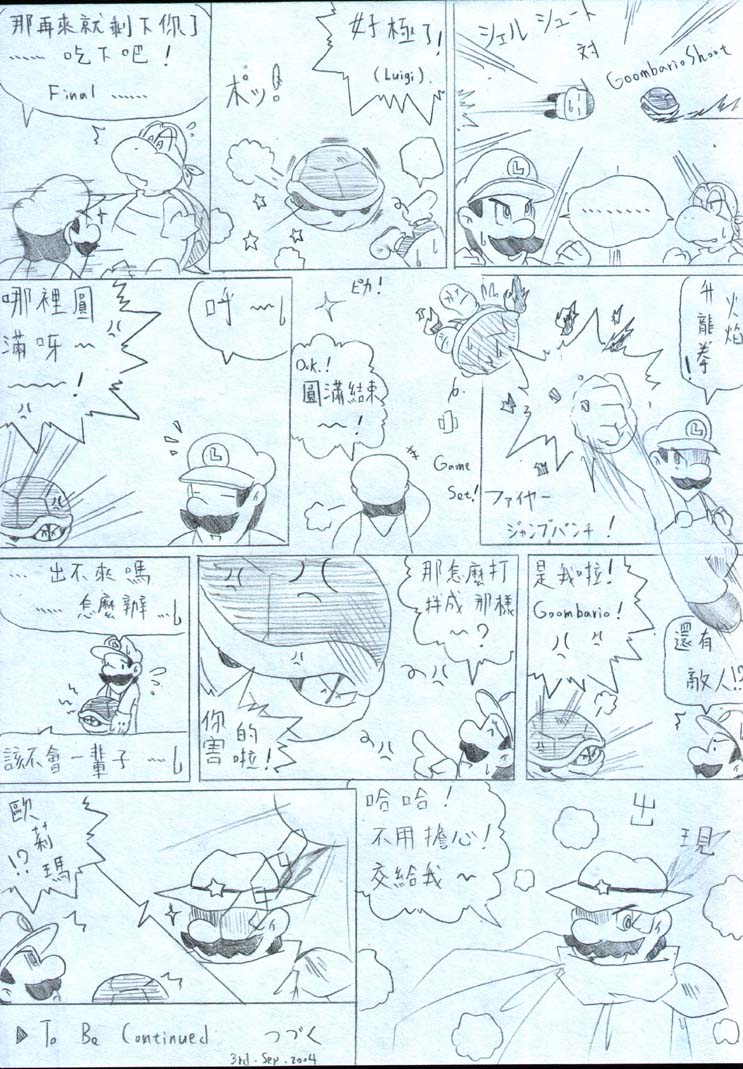 シェルシュート
対
Goombario Shoot
L
.........
好極了!
(Luigi).
ポッ!
那再來就剩下你了
......吃下吧!
Final ......
火焰
升龍拳!
L
ファイヤー
ジャンプパンチ!
ピカ!
O.K.!
圓滿結束
~!
Game
Set!
呼~~
L
哪裡圓
滿呀~
~~!
還有
敵人!?
是我啦!
Goombario!
那怎麼打
拌成那樣
~?
你害的啦!
...出不來嗎
......怎麼辦...
該不會一輩子~
出現
哈哈!
不用擔心!
交給我~
歐莉瑪!?
▶ To Be Continued つづく
3rd.Sep.2004